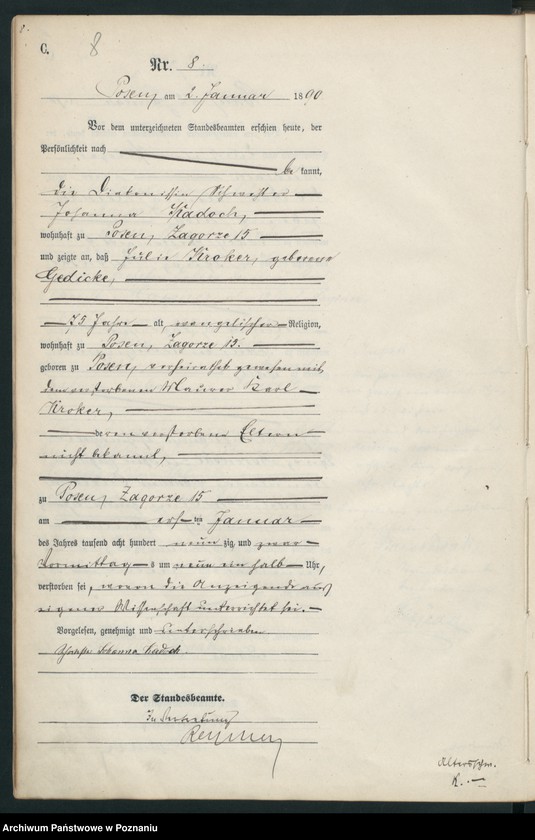 C.
8
Nr. 8.
Posen, am 2. Januar 1890
Vor dem unterzeichneten Standesbeamten erschien heute, der
Persönlichkeit nach
be kannt,
die Diakonissin Schwester
Johanna Kadoch,
wohnhaft zu Posen, Zagorze 15
und zeigte an, daß Julie Kroker, geborene
Gedicke,
75 Jahre alt, evangelischer Religion,
wohnhaft zu Posen, Zagorze 15.
geboren zu Posen, verheirathet gewesen mit
dem verstorbenen Maurer Karl
Kroker,
deren verstorbene Eltern
nicht bekannt,
zu Posen, Zagorze 15
am ersten Januar
des Jahres tausend acht hundert neun zig und zwar
Vormittag s um neun ein halb Uhr,
verstorben sei, wovon die Anzeigende aus
eigener Wissenschaft unterrichtet sei.
Vorgelesen, genehmigt und unterschrieben
Schwester Johanna Kadoch.
Der Standesbeamte.
In Vertretung
Altersschw.
K.
Archiwum Państwowe w Poznaniu